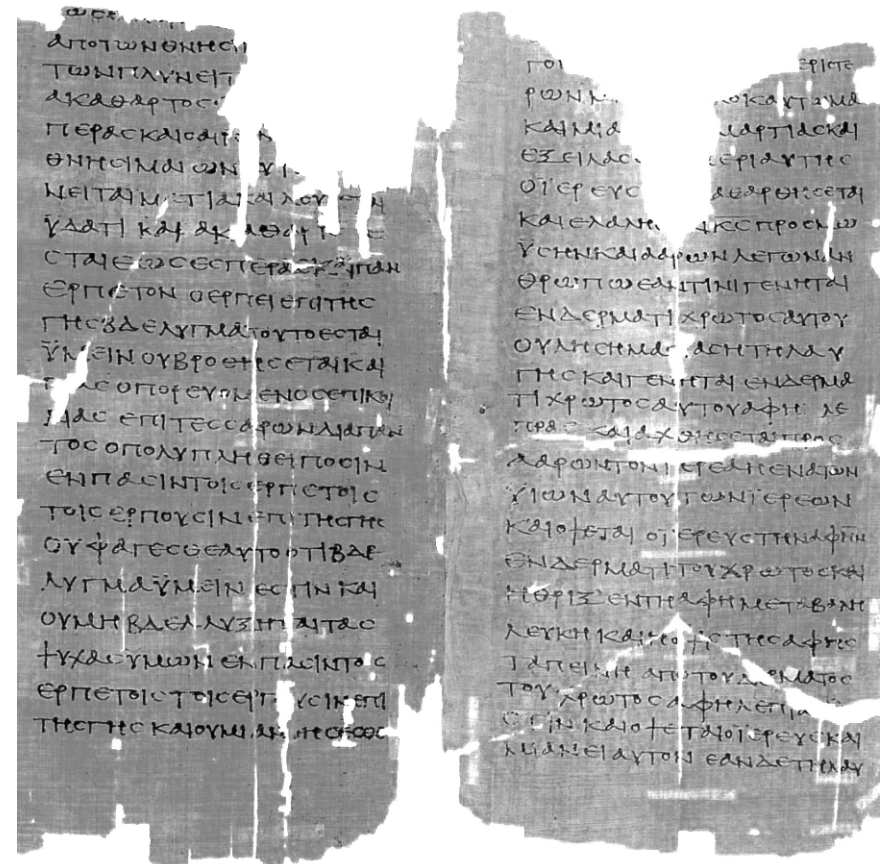 ΑΠΟΤΩΝΘΝΗCΙ
ΤΩΝΠΛΥΝΕΙΤ
ΑΚΑΘΑΡΤΟC
ΠΕΡΑCΚΑΙ
ΘΝΗCΙΜΑΙΩΝ
ΝΕΙΤΑΙ ΛΟΥ
ΫΔΑΤΙ ΚΑΙ ΑΚΑΘΑΡΤΟC Ε
CΤΑΙΕΩCΕCΠΕΡΑC ΚΑΙΠΑΝ
ΕΡΠΕΤΟΝ ΟΕΡΠΕΙΕΠΙΤΗC
ΓΗCΒΔΕΛΥΓΜΑΤΟΥΤΟΕCΤΑΙ
ΫΜΕΙΝΟΥΒΡΟΘΗCΕΤΑΙΚΑΙ
ΟΠΟΡΕΥΟΜΕΝΟCΕΠΙΚΟΙ
ΛΙΑC ΕΠΙΤΕCCΑΡΩΝΔΙΑΠΑΝ
ΤΟCΟΠΟΛΥΠΛΗΘΕΙΠΟCΙΝ
ΕΝΠΑCΙΝΤΟΙCΕΡΠΕΤΟΙC
ΤΟΙCΕΡΠΟΥCΙΝΕΠΙΤΗCΓΗC
ΟΥΦΑΓΕCΘΕΑΥΤΟΟΤΙΒΔΕ
ΛΥΓΜΑΫΜΕΙΝΕCΤΙΝΚΑΙ
ΟΥΜΗΒΔΕΛΛΥΞΗΤΑΙΤΑC
ΨΥΧΑCΥΜΩΝΕΝΠΑCΙΝΤΟΙC
ΕΡΠΕΤΟΙCΤΟΙCΕΡΠΟΥCΙΝΕΠΙ
ΤΗCΓΗCΚΑΙΟΥΜΙΑΝ
ΓΟΙ ΕΡΙCΤΕ
ΡΩΝ ΚΑΥΤΩΜΑ
ΚΑΙΜΙΑ ΜΑΡΤΙΑCΚΑΙ
ΕΞΕΙΛΑC ΠΕΡΙΑΥΤΗC
ΟΪΕΡΕΥC ΚΑΘΑΡΘΗCΕΤΑΙ
ΚΑΙΕΛΑΛΗC ΚCΠΡΟCΜΩ
ΫCΗΝΚΑΙΑΑΡΩΝΛΕΓΩΝΑΝ
ΘΡΩΠΩΕΑΝΤΙΝΙΓΕΝΗΤΑΙ
ΕΝΔΕΡΜΑΤΙΧΡΩΤΟCΑΥΤΟΥ
ΟΥΛΗCΗΜΑCΙΑCΗΤΗΛΑΥ
ΓΗCΚΑΙΓΕΝΗΤΑΙΕΝΔΕΡΜΑ
ΤΙΧΡΩΤΟCΑΥΤΟΥΑΦΗΛΕ
ΠΡΑC ΚΑΙΑΧΘΗCΕΤΑΙΠΡΟC
ΑΑΡΩΝΤΟΝΙΕΡΕΑΗΕΝΑΤΩΝ
ΫΙΩΝΑΥΤΟΥΤΩΝΪΕΡΕΩΝ
ΚΑΙΟΨΕΤΑΙΟΪΕΡΕΥCΤΗΝΑΦΗΝ
ΕΝΔΕΡΜΑΤΙΤΟΥΧΡΩΤΟCΚΑΙ
ΗΘΡΙΞΕΝΤΗΑΦΗΜΕΤΑΒΑΛΗ
ΛΕΥΚΗΚΑΙΗΟΨΙCΤΗCΑΦΗC
ΤΑΠΕΙΝΗΑΠΟΤΟΥΔΕΡΜΑΤΟC
ΤΟΥ ΧΡΩΤΟCΑΦΗΛΕΠΡΑ
CΤΙΝΚΑΙΟΨΕΤΑΙΟΪΕΡΕΥCΚΑΙ
ΜΙΑΝΕΙΑΥΤΟΝΕΑΝΔΕΤΗΛΑΥ